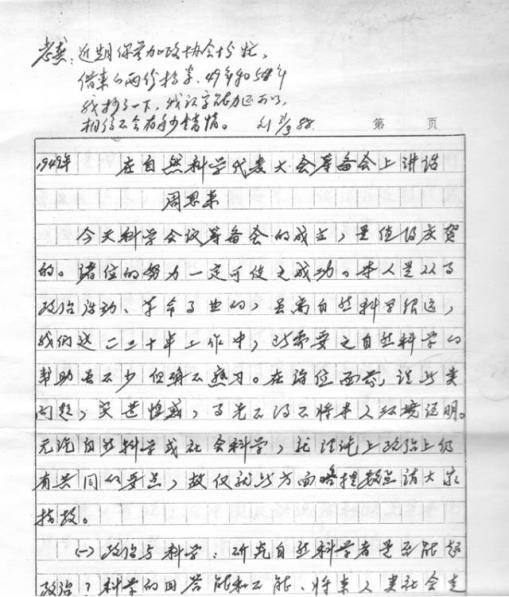 近期你参加政协会十分忙，
借来的两份档案，49年和58年
我抄了一下，我认字能力还可以，
相信不会有多少错漏。 21/3 88
第 页
1949年 在自然科学代表大会筹备会上讲话
周恩来
今天科学会议筹备会的成立，是值得庆贺
的。诸位的努力一定可使之成功。本人是从事
政治活动、革命事业的，距离自然科学很远，
我们这二三十年工作中，所需要之自然科学的
帮助虽不少但确不熟习。在诸位面前，谈此类
问题，实甚惶惑，事先不得不将本人环境证明。
无论自然科学或社会科学，就理论上政治上仍
有共同的要点，故仅就此方面略提数点请大家
指教。
(一)政治与科学：研究自然科学者是否能超
政治？科学的因答能和不能、将来人类社会走